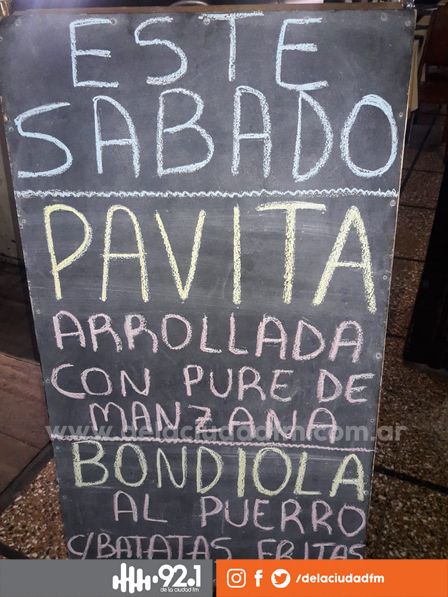 ESTE
SABADO
PAVITA
ARROLLADA
CON PURE DE
MANZANA
www.delaciudadfm.com.ar
BONDIOLA
AL PUERRO
C/BATATAS FRITAS
92.1
de la ciudad fm
/delaciudadfm